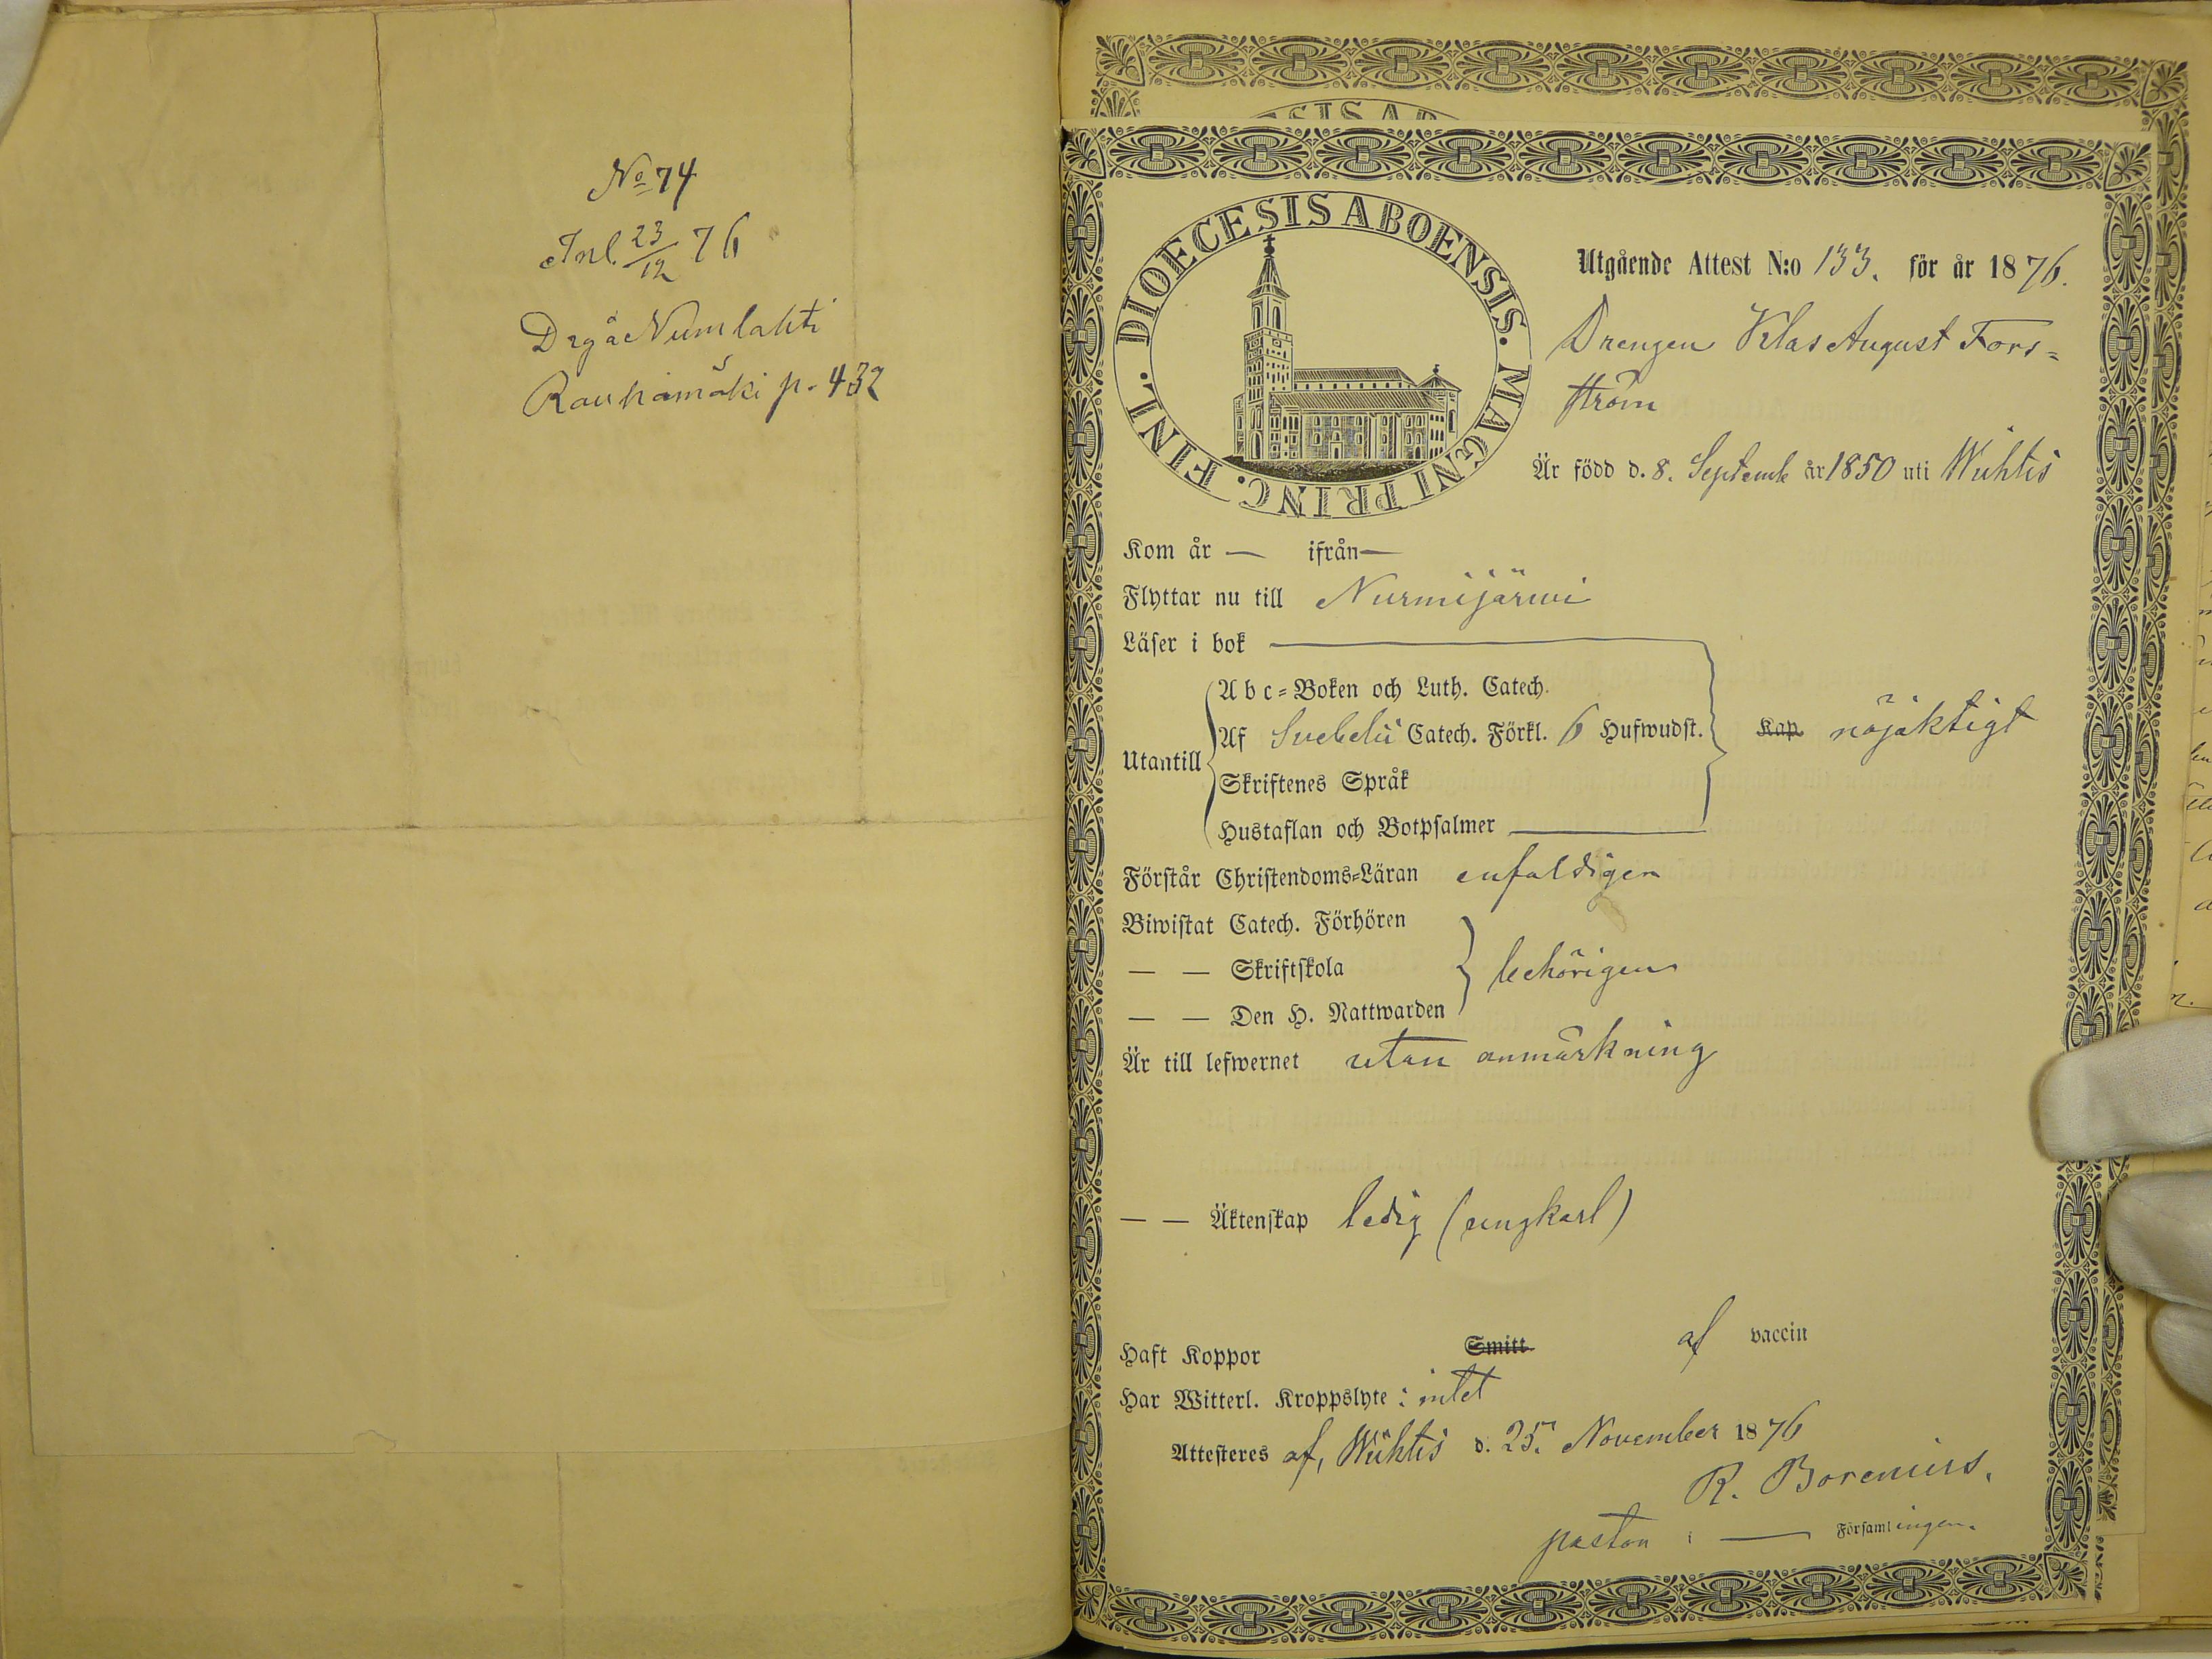 No 74
Inl. 23/12 76
Drg å Numlahti
Rauhamäki p. 432
SIS AB
DIOECESIS ABOENSIS. MAGNI PRINC. FINL.
Utgående Attest N:o 133. för år 1876.
Drengen Klas August Fors=
ström
Är född d. 8. Septemb år 1850 uti Wichtis
Kom år — ifrån —
Flyttar nu till Nurmijärwi
Läser i bok
A b c=Boken och Luth. Catech.
Utantill Af Svebelii Catech. Förkl. 6 Hufwudst. Kap nöjaktigt
Skriftenes Språk
Hustaflan och Botpsalmer
Förstår Christendoms=Läran enfaldigen
Biwistat Catech. Förhören
— — Skriftskola behörigen
— — Den H. Nattwarden
Är till lefwernet utan anmärkning
— — Äktenskap ledig (ungkarl)
Haft Koppor Smitt af vaccin
Har Witterl. Kroppslyte : intet
Attesteres af, Wichtis d. 25. November 1876
R. Borenius.
pastor i — Församlingen.